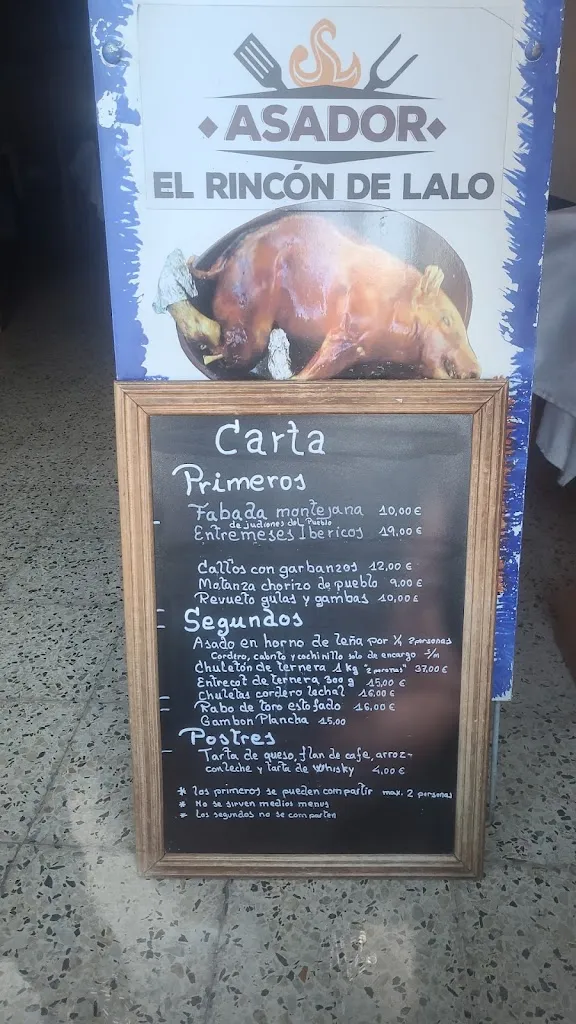 ASADOR
EL RINCÓN DE LALO
Carta
Primeros
Fabada montejana 10,00 €
de judiones del Pueblo
Entremeses Ibericos 19,00 €
Callos con garbanzos 12,00 €
Matanza chorizo de pueblo 9.00 €
Revueto gulas y gambas 10,00 €
Segundos
Asado en horno de leña por ¼ 2 personas
Cordero, cabrito y cochinillo solo de encargo S/m
Chuletón de ternera 1 kg "2 personas" 37,00 €
Entrecot de ternera 300 g 15,00 €
Chuletas cordero lechal 16.00 €
Rabo de toro estofado 16.00 €
Gambon Plancha 15,00
Postres
Tarta de queso, flan de cafe, arroz-
con leche y tarta de whisky 4,00 €
* Los primeros se pueden compartir max. 2 personas
* No se sirven medios menus
* Los segundos no se comparten